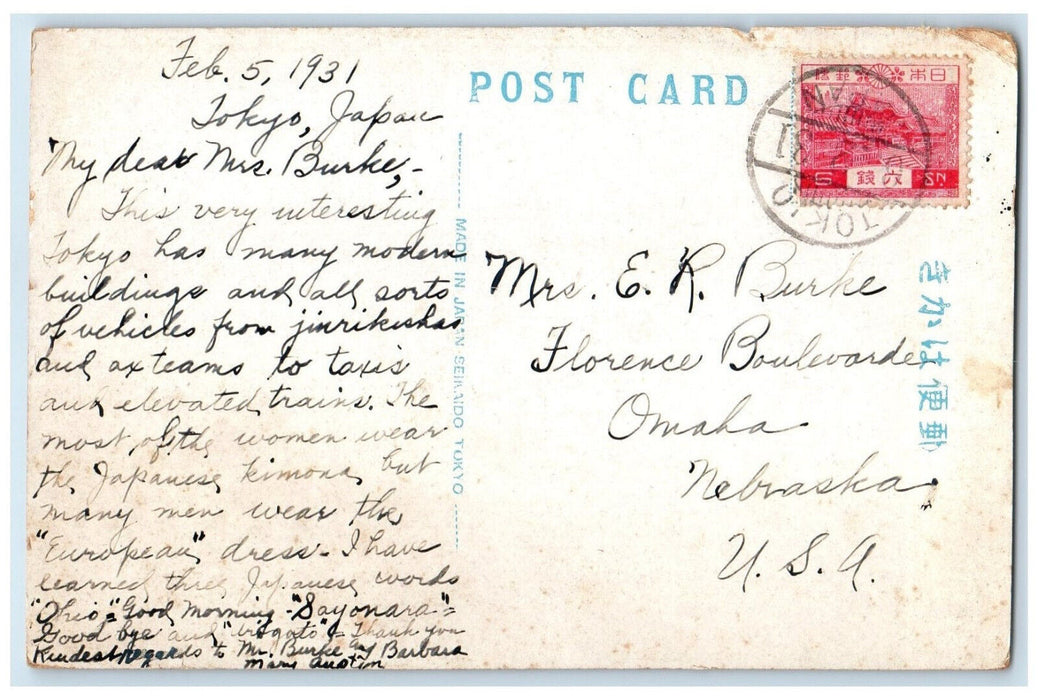 Feb. 5, 1931
Tokyo, Japan
My dear Mrs. Burke,-
This very interesting
Tokyo has many modern
buildings and all sorts
of vehicles from jinrikishas
and ox teams to taxis
and elevated trains. The
most of the women wear
the Japanese kimona, but
many men wear the
"European" dress. I have
learned three Japanese words
"Ohio" = Good Morning - "Sayonara" =
Good bye and "arigato" = Thank you
Kindest regards to Mr. Burke and Barbara
Mary Austin
MADE IN JAPAN SEIKAIDO TOKYO
POST CARD
日本郵便
六銭
6 SN
TOKIO
JAPAN
Mrs. E. R. Burke
Florence Boulevarde
Omaha
Nebraska
U. S. A.
きかは便郵